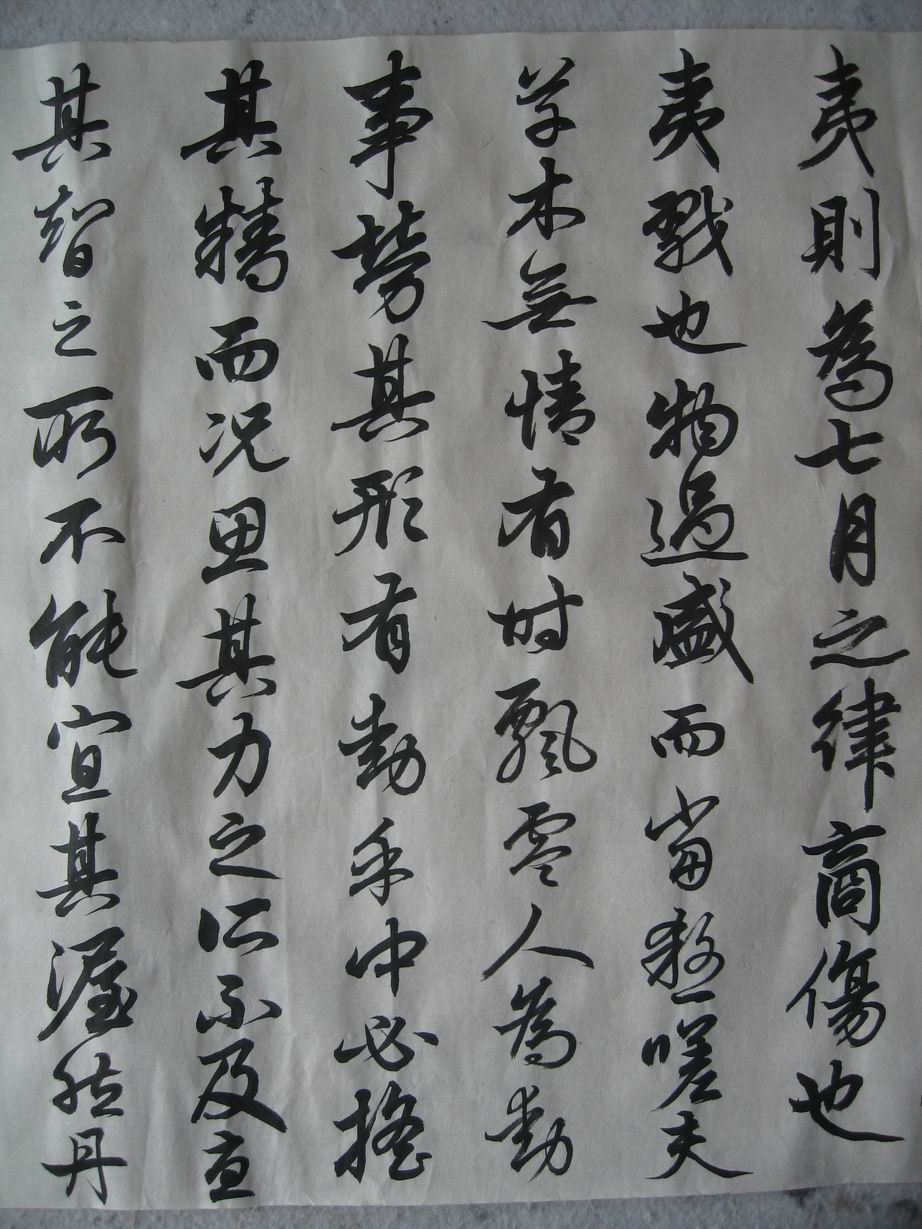 夷則為七月之律商傷也
夷戮也物過盛而當殺嗟夫
草木無情有时飄零人為動
事勞其形有動乎中必搖
其精而况思其力之所不及憂
其智之所不能宜其渥然丹